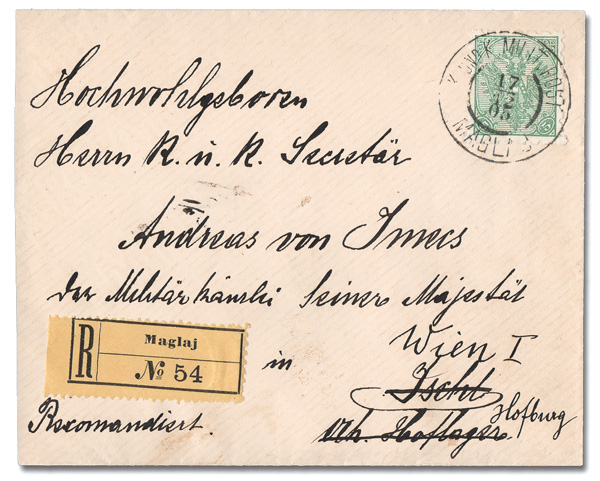 K. UND K. MILIT. POST
17
MAGLAJ
5
Hochwohlgeboren
Herrn K. u. K. Secretär
Andreas von Imecs
der Militärkánzlei Seiner Majestät
Wien I
R
Maglaj
№ 54
in
Ischl
Hofburg
Recomandiert.
Ah. Hoflager.